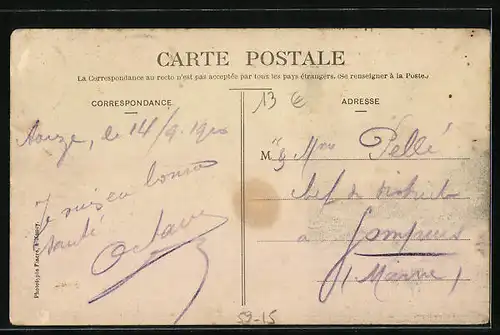 CARTE POSTALE
La Correspondance au recto n'est pas acceptée par tous les pays étrangers. (Se renseigner à la Poste.)
CORRESPONDANCE
le 14/9
Je suis en bonne
santé
Octave
Phototypie
13 €
ADRESSE
M Mme Pellé
chef de
à
(Marne)
59-15